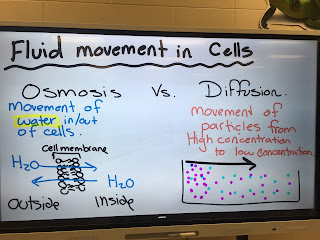 Fluid movement in Cells
Osmosis vs. Diffusion.
movement of
water in/out
of cells.
movement of
particles from
High concentration
to low concentration.
cell membrane
H₂O
H₂O
outside
Inside